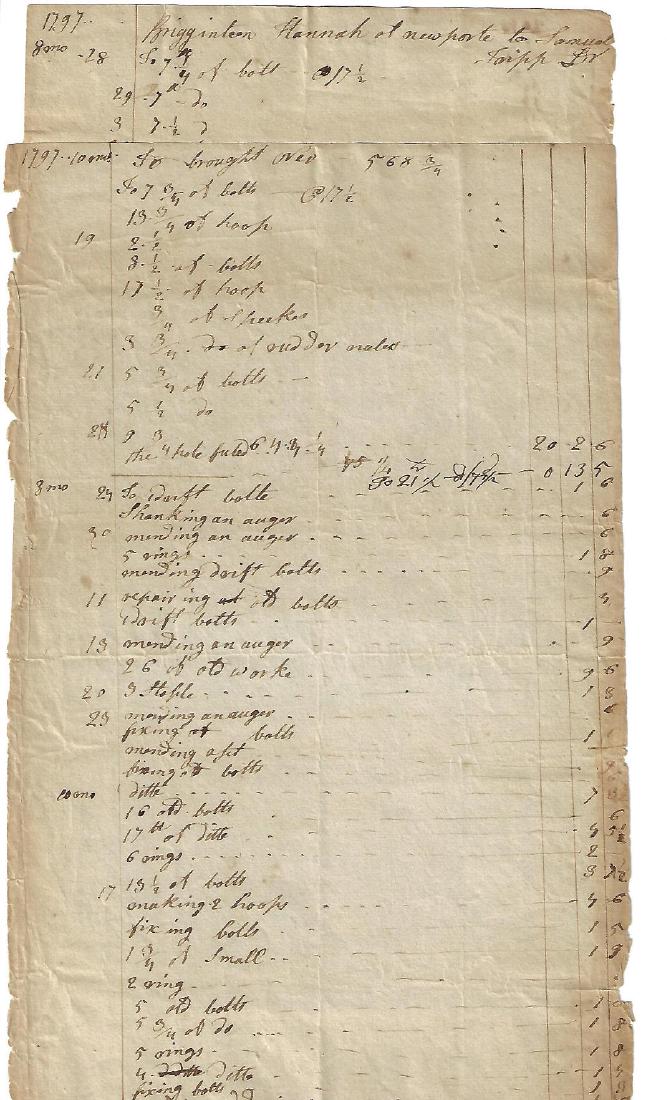 1797. Brigginteen Hannah of newporte to Samuel
Tripp Dr
8 mo - 28 To 7 3/4 of bolts - @ 17 1/2
29 - 7 do
3 7 1/2 d
1797 - 10 mo To brought over 568 3/4
To 7 3/4 of bolts - @ 17 1/2
13 3/4 of hoop
19 2 1/2
8 1/2 of bolts
17 1/2 of hoop
3/4 of Speekes
3 3/4 do of rudder nales
21 5 3/4 of bolts
5 1/2 do
9 3
the hole 20 - 2 - 6
To 21 1/2 - 0 13 5
8 mo 29 To 1 drift bolte - 1 6
Shanking an auger - 6
30 mending an auger - 6
5 rings - 1 8
mending drift bolts - 9
11 repairing of old bolts 3
1 drift bolts - 1 -
13 mending an auger - 9
26 of old worke 9 6
20 3 Staple - 1 8
23 mening an auger - 6
fixing of bolts 1
mending a set
fixing of bolts
10 mo ditte - 7
16 old bolts 6
17 lb of ditte 4 5 1/2
6 rings - 2
17 13 1/2 of bolts 3 7 1/2
making 2 hoops 4 6
fixing bolts 1 5
1 3/4 of Small - 1 9
2 ring -
5 old bolts 1
5 3/4 of do 1 8
5 rings - 1 8
4 ditte 1
fixing bolts 1